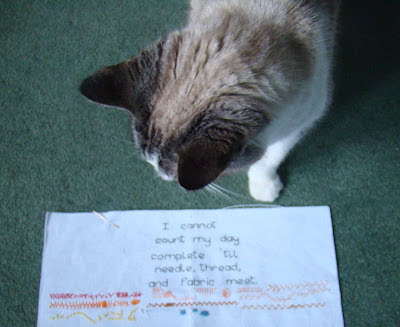 I cannot
count my day
complete 'til
needle, thread,
and fabric meet.